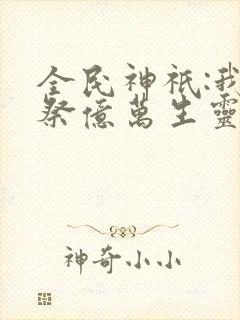 全民神祇:我
祭億萬生靈
神奇小小